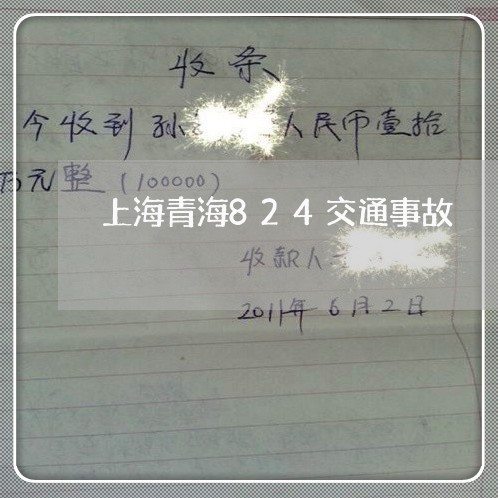 收条
今收到孙 人民币壹拾
万元整(100000)
上海青海824交通事故
收款人
2011年6月2日